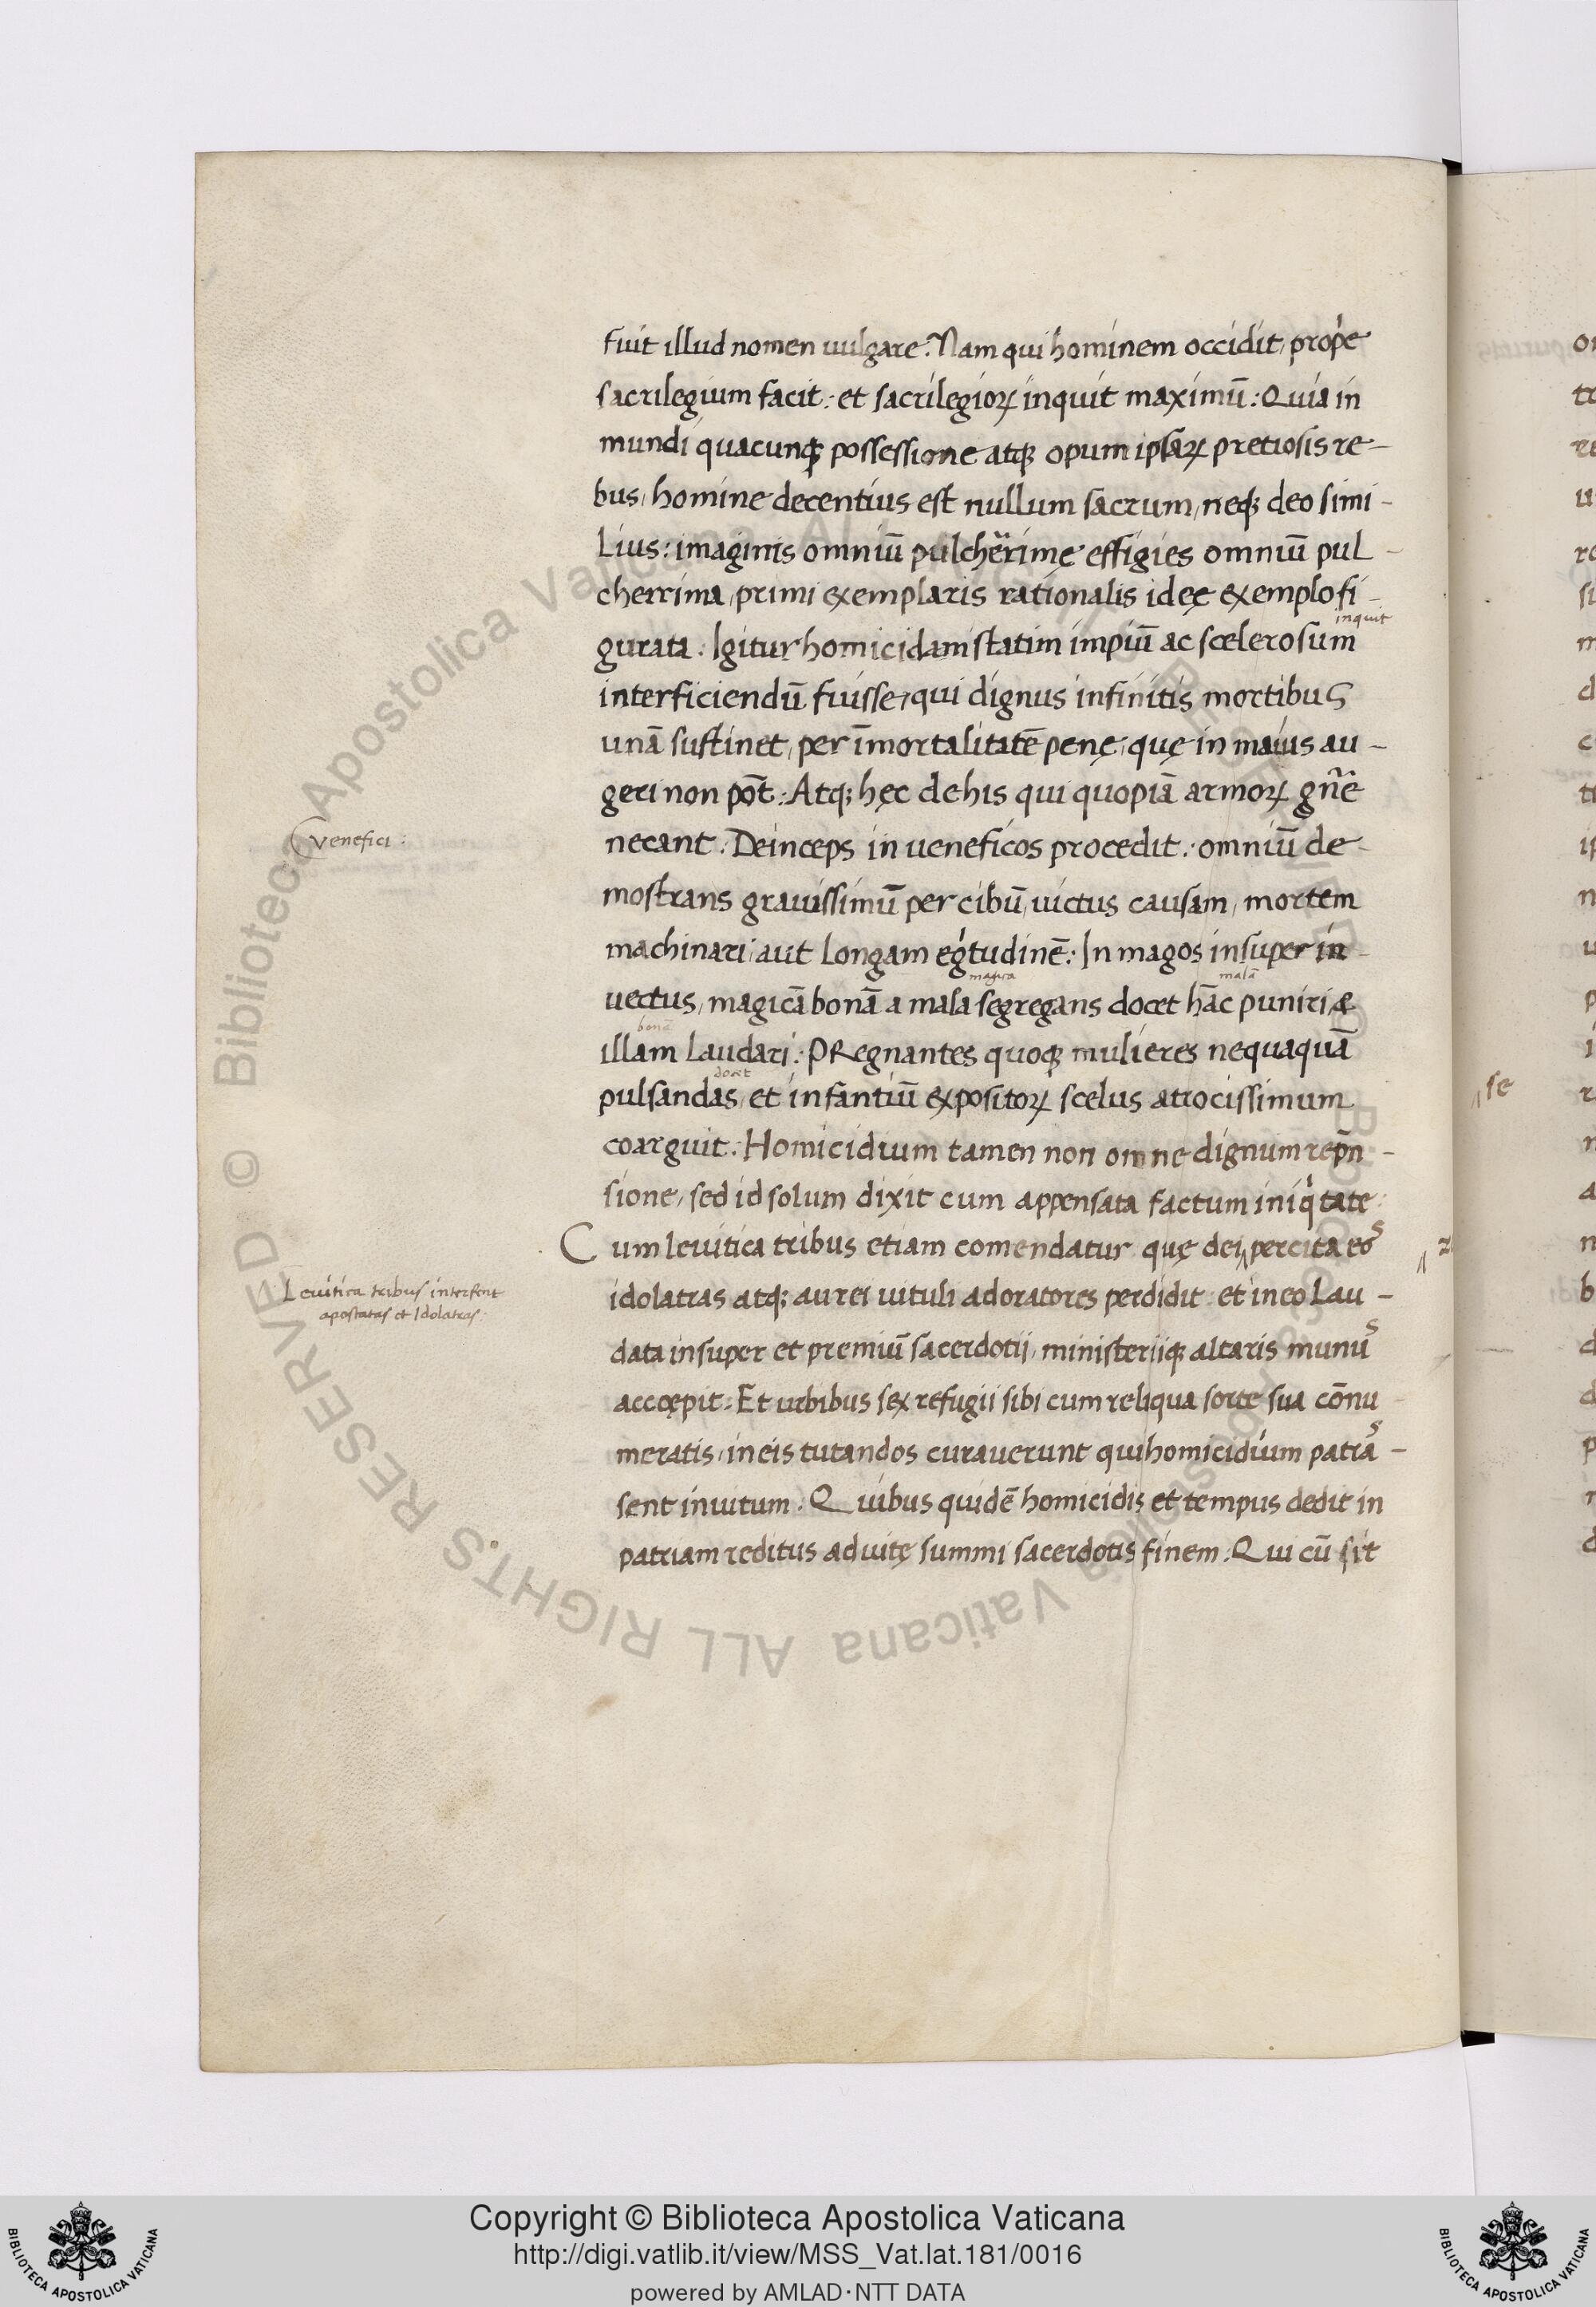 fuit illud nomen uulgare. Nam qui hominem occidit, prope
sacrilegium facit: et sacrilegioꝝ inquit maximū: Quia in
mundi quacunqꝫ possessione atqꝫ opum ipsaꝝ pretiosis re-
bus, homine decentius est nullum sacrum, neqꝫ deo simi-
lius: imaginis omniū pulcherrimę effigies omniū pul-
cherrima, primi exemplaris rationalis ideę exemplo fi-
inquit
gurata. Igitur homicidam statim impiū ac scelerosum
interficiendū fuisse, qui dignus infinitis mortibus
unā sustinet, per īmortalitatē penę, quę in maius au-
geri non pōt: Atqꝫ hęc de his qui quopiā armoꝝ gn̄re
Venefici:
necant. Deinceps in ueneficos procedit: omniū de-
mostrans grauissimū per cibū, uictus causam, mortem
machinari, aut longam egritudinē: In magos insuper in-
malā
uectus, magicā bonā a mala segregans docet hāc puniri &
bonā
illam laudari: PRegnantes quoqꝫ mulieres nequaquā
docet
pulsandas, et infantiū expositoꝝ scelus atrocissimum
coarguit: Homicidium tamen non omne dignum rep̄n-
sione, sed id solum dixit cum appensata factum iniqͥtate:
Cum leuitica tribus etiam comendatur quę dei percita eos
Leuitica tribus interferit
apostatas et Idolatras.
idolatras atqꝫ aurei uituli adoratores perdidit: et in eo lau-
data insuper et premiū sacerdotii, ministeriiqꝫ altaris munus
accępit: Et urbibus sex refugii sibi cum reliqua sorte sua cōnu-
meratis, in eis tutandos curauerunt qui homicidium patras-
sent inuitum. Quibus quidē homicidis et tempus dedit in
patriam reditus ad uitę summi sacerdotis finem: Qui cū sit
se
Copyright © Biblioteca Apostolica Vaticana
http://digi.vatlib.it/view/MSS_Vat.lat.181/0016
powered by AMLAD·NTT DATA
BIBLIOTECA APOSTOLICA VATICANA
BIBLIOTECA APOSTOLICA VATICANA
© Biblioteca Apostolica Vaticana ALL RIGHTS RESERVED
© Biblioteca Apostolica Vaticana ALL RIGHTS RESERVED